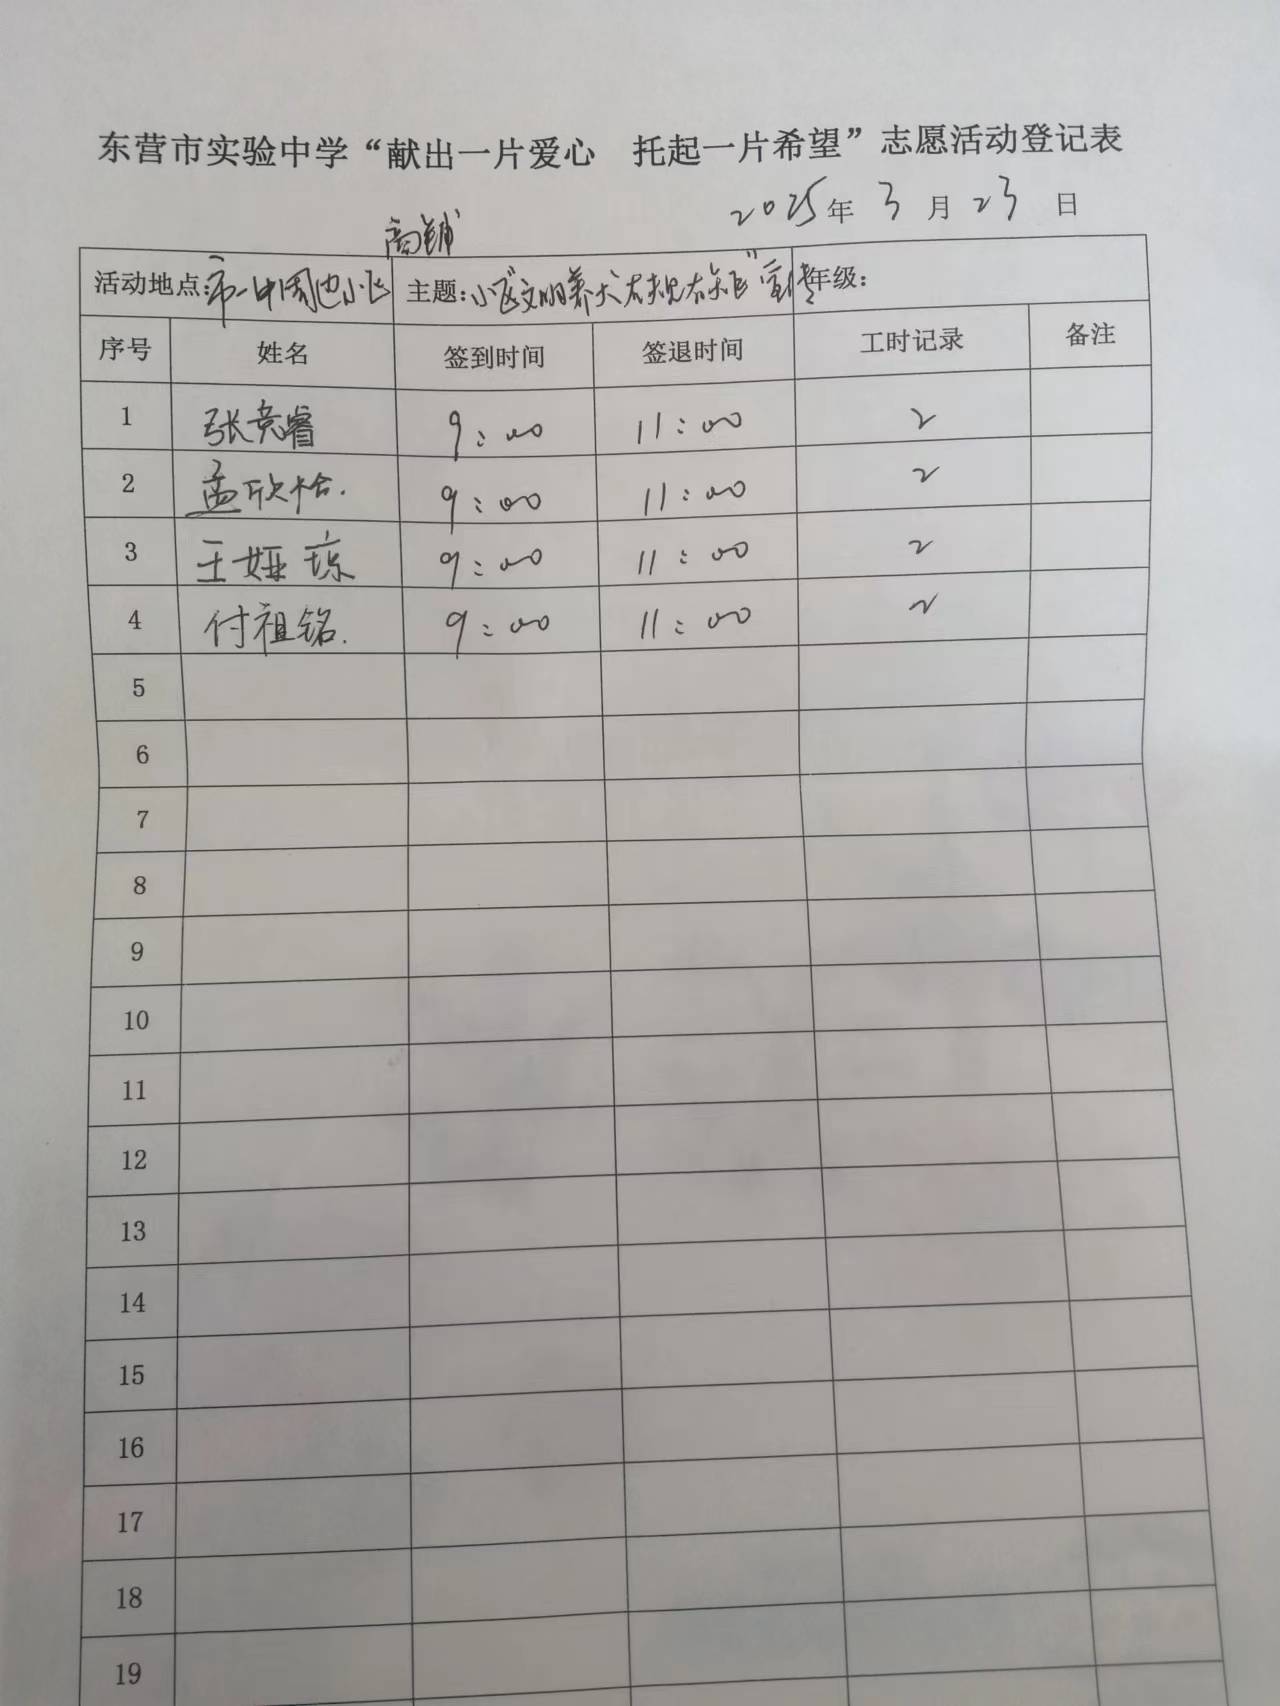 东营市实验中学“献出一片爱心 托起一片希望”志愿活动登记表
2025年 3 月 23 日
商铺
活动地点:市一中周边小区 主题:小区“文明养犬 有规有矩”宣传 年级:
序号 姓名 签到时间 签退时间 工时记录 备注
1 张竞睿 9:00 11:00 2
2 孟欣怡. 9:00 11:00 2
3 王娅琼 9:00 11:00 2
4 付祖铭. 9:00 11:00 2
5
6
7
8
9
10
11
12
13
14
15
16
17
18
19